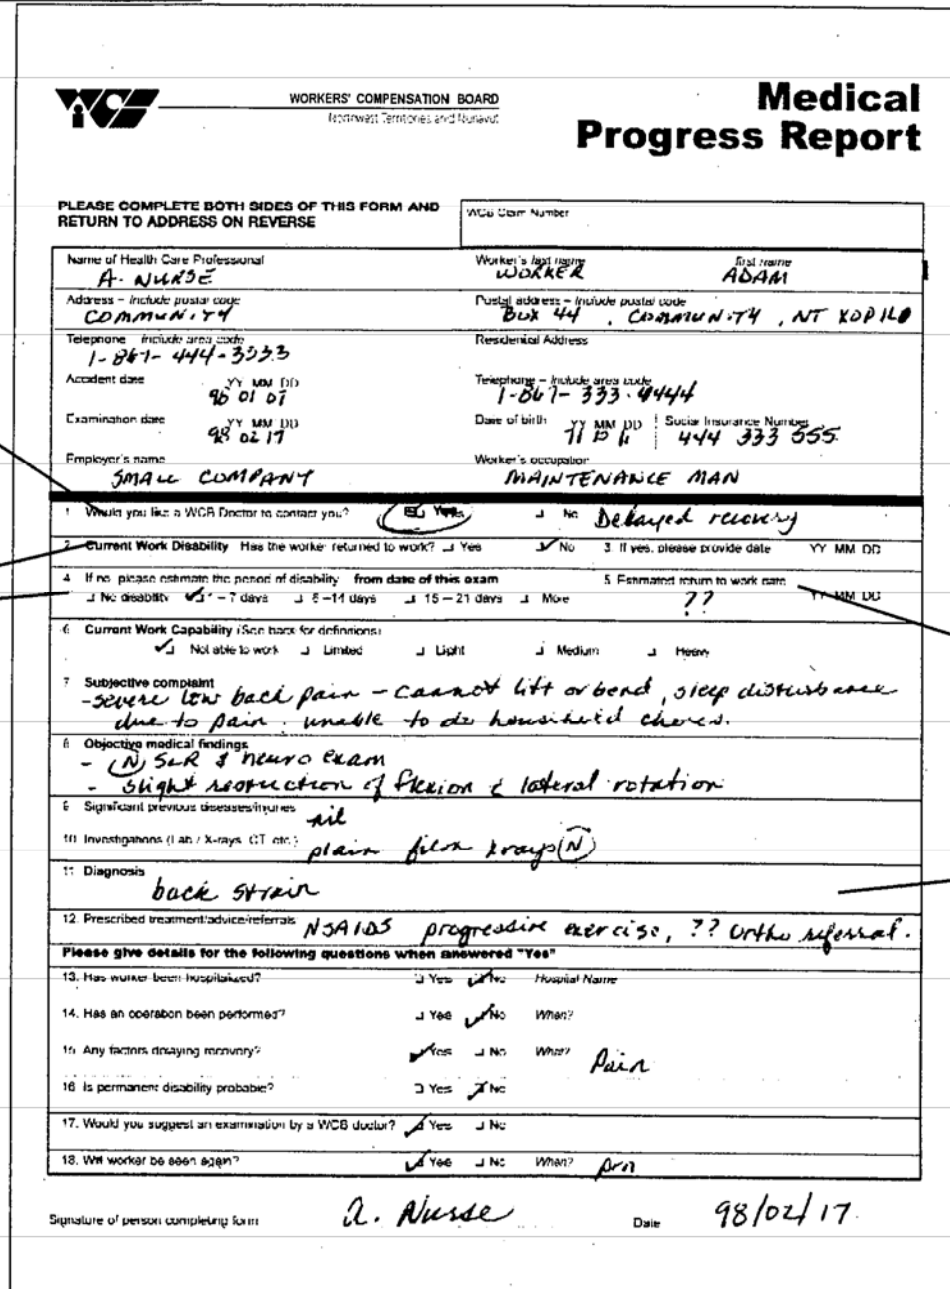 WCB
WORKERS' COMPENSATION BOARD
Northwest Territories and Nunavut
Medical
Progress Report
PLEASE COMPLETE BOTH SIDES OF THIS FORM AND
RETURN TO ADDRESS ON REVERSE
WCB Claim Number
Name of Health Care Professional Worker's last name first name
A. NURSE WORKER ADAM
Address – Include postal code Postal address – Include postal code
COMMUNITY BOX 44, COMMUNITY, NT
Telephone Include area code Residential Address
1-867-444-3333
Accident date YY MM DD Telephone – Include area code
01 01 1-867-333-4444
Examination date YY MM DD Date of birth YY MM DD Social Insurance Number
98 02 17 444 333 555
Employer's name Worker's occupation
SMALL COMPANY MAINTENANCE MAN
1 Would you like a WCB Doctor to contact you? Yes No Delayed recovery
2. Current Work Disability Has the worker returned to work? Yes No 3. If yes, please provide date YY MM DD
4 If no please estimate the period of disability from date of this exam 5. Estimated return to work date
No disability 1 – 7 days 8 – 14 days 15 – 21 days More ?? YY MM DD
6 Current Work Capability (See back for definitions)
Not able to work Limited Light Medium Heavy
7 Subjective complaint
- severe low back pain - cannot lift or bend, sleep disturbance
due to pain. unable to do household chores.
8 Objective medical findings
- (N) SLR & neuro exam
- slight restriction of flexion & lateral rotation
9 Significant previous diseases/injuries nil
10. Investigations (Lab / X-rays, CT etc.) plain film xrays (N)
11 Diagnosis
back strain
12. Prescribed treatment/advice/referrals NSAIDS progressive exercise, ?? Ortho referral.
Please give details for the following questions when answered "Yes"
13. Has worker been hospitalized? Yes No Hospital Name
14. Has an operation been performed? Yes No When?
15 Any factors delaying recovery? Yes No What? Pain
16 Is permanent disability probable? Yes No
17. Would you suggest an examination by a WCB doctor? Yes No
18. Will worker be seen again? Yes No When? prn
Signature of person completing form A. Nurse Date 98/02/17